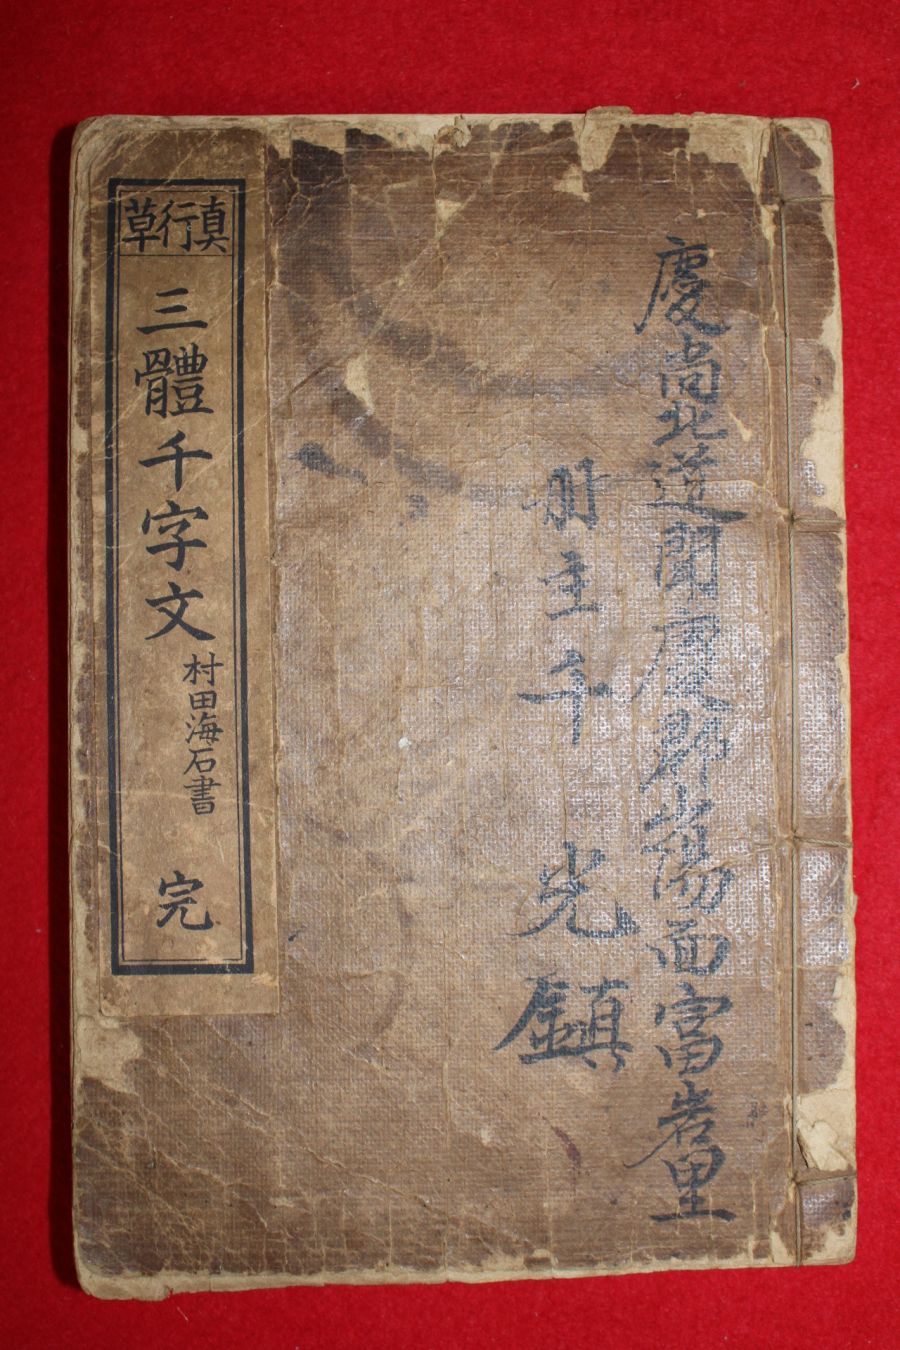 慶尚北道聞慶郡山陽面富岩里
冊主千光鎮
真行草
三體千字文
村田海石書
完